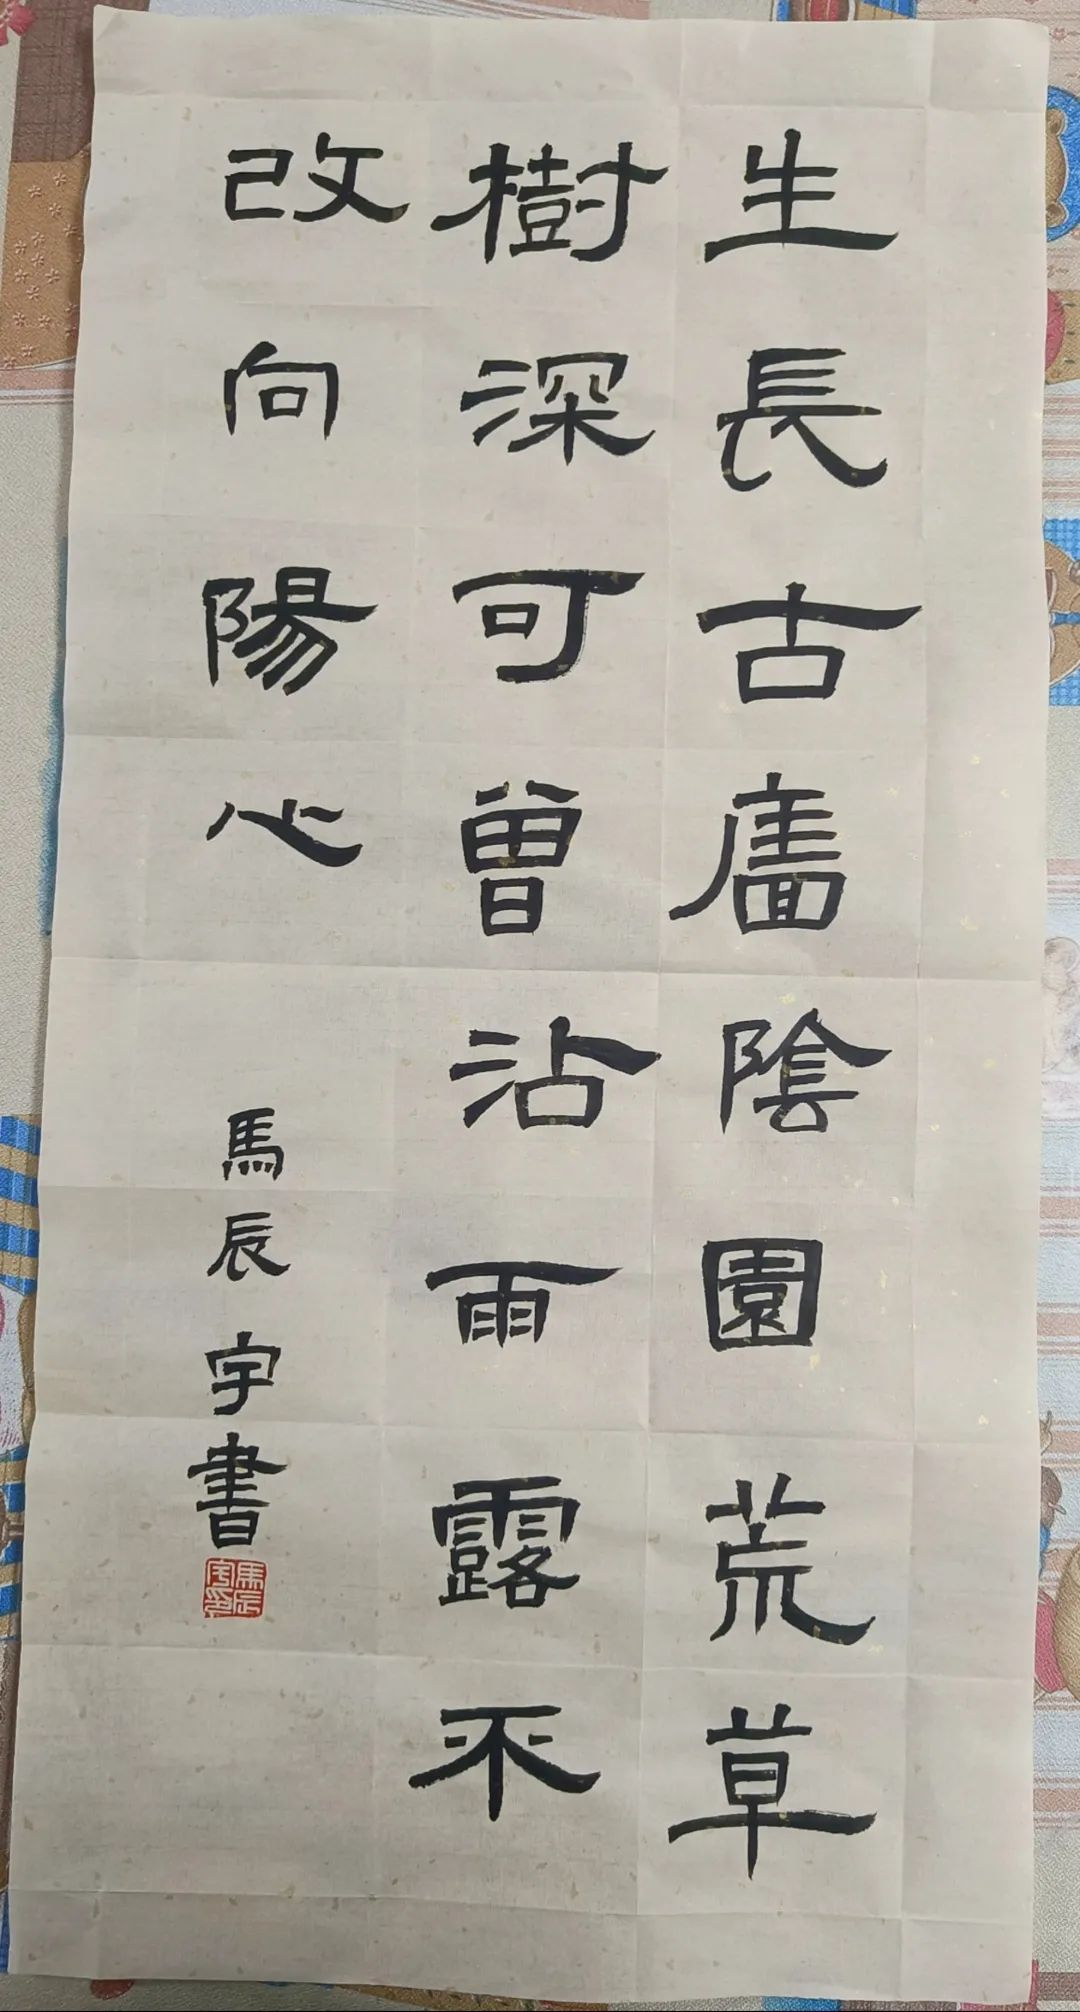 生長古廧陰園荒草
樹深可曾沾雨露不
改向陽心
馬辰宇書
馬辰宇印